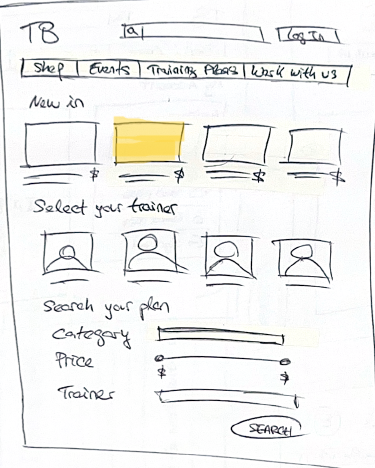 TB a Log In
Shop Events Training Plans Work with us
New in
$ $ $ $
Select your trainer
Search your plan
Category
Price
$ $
Trainer
SEARCH